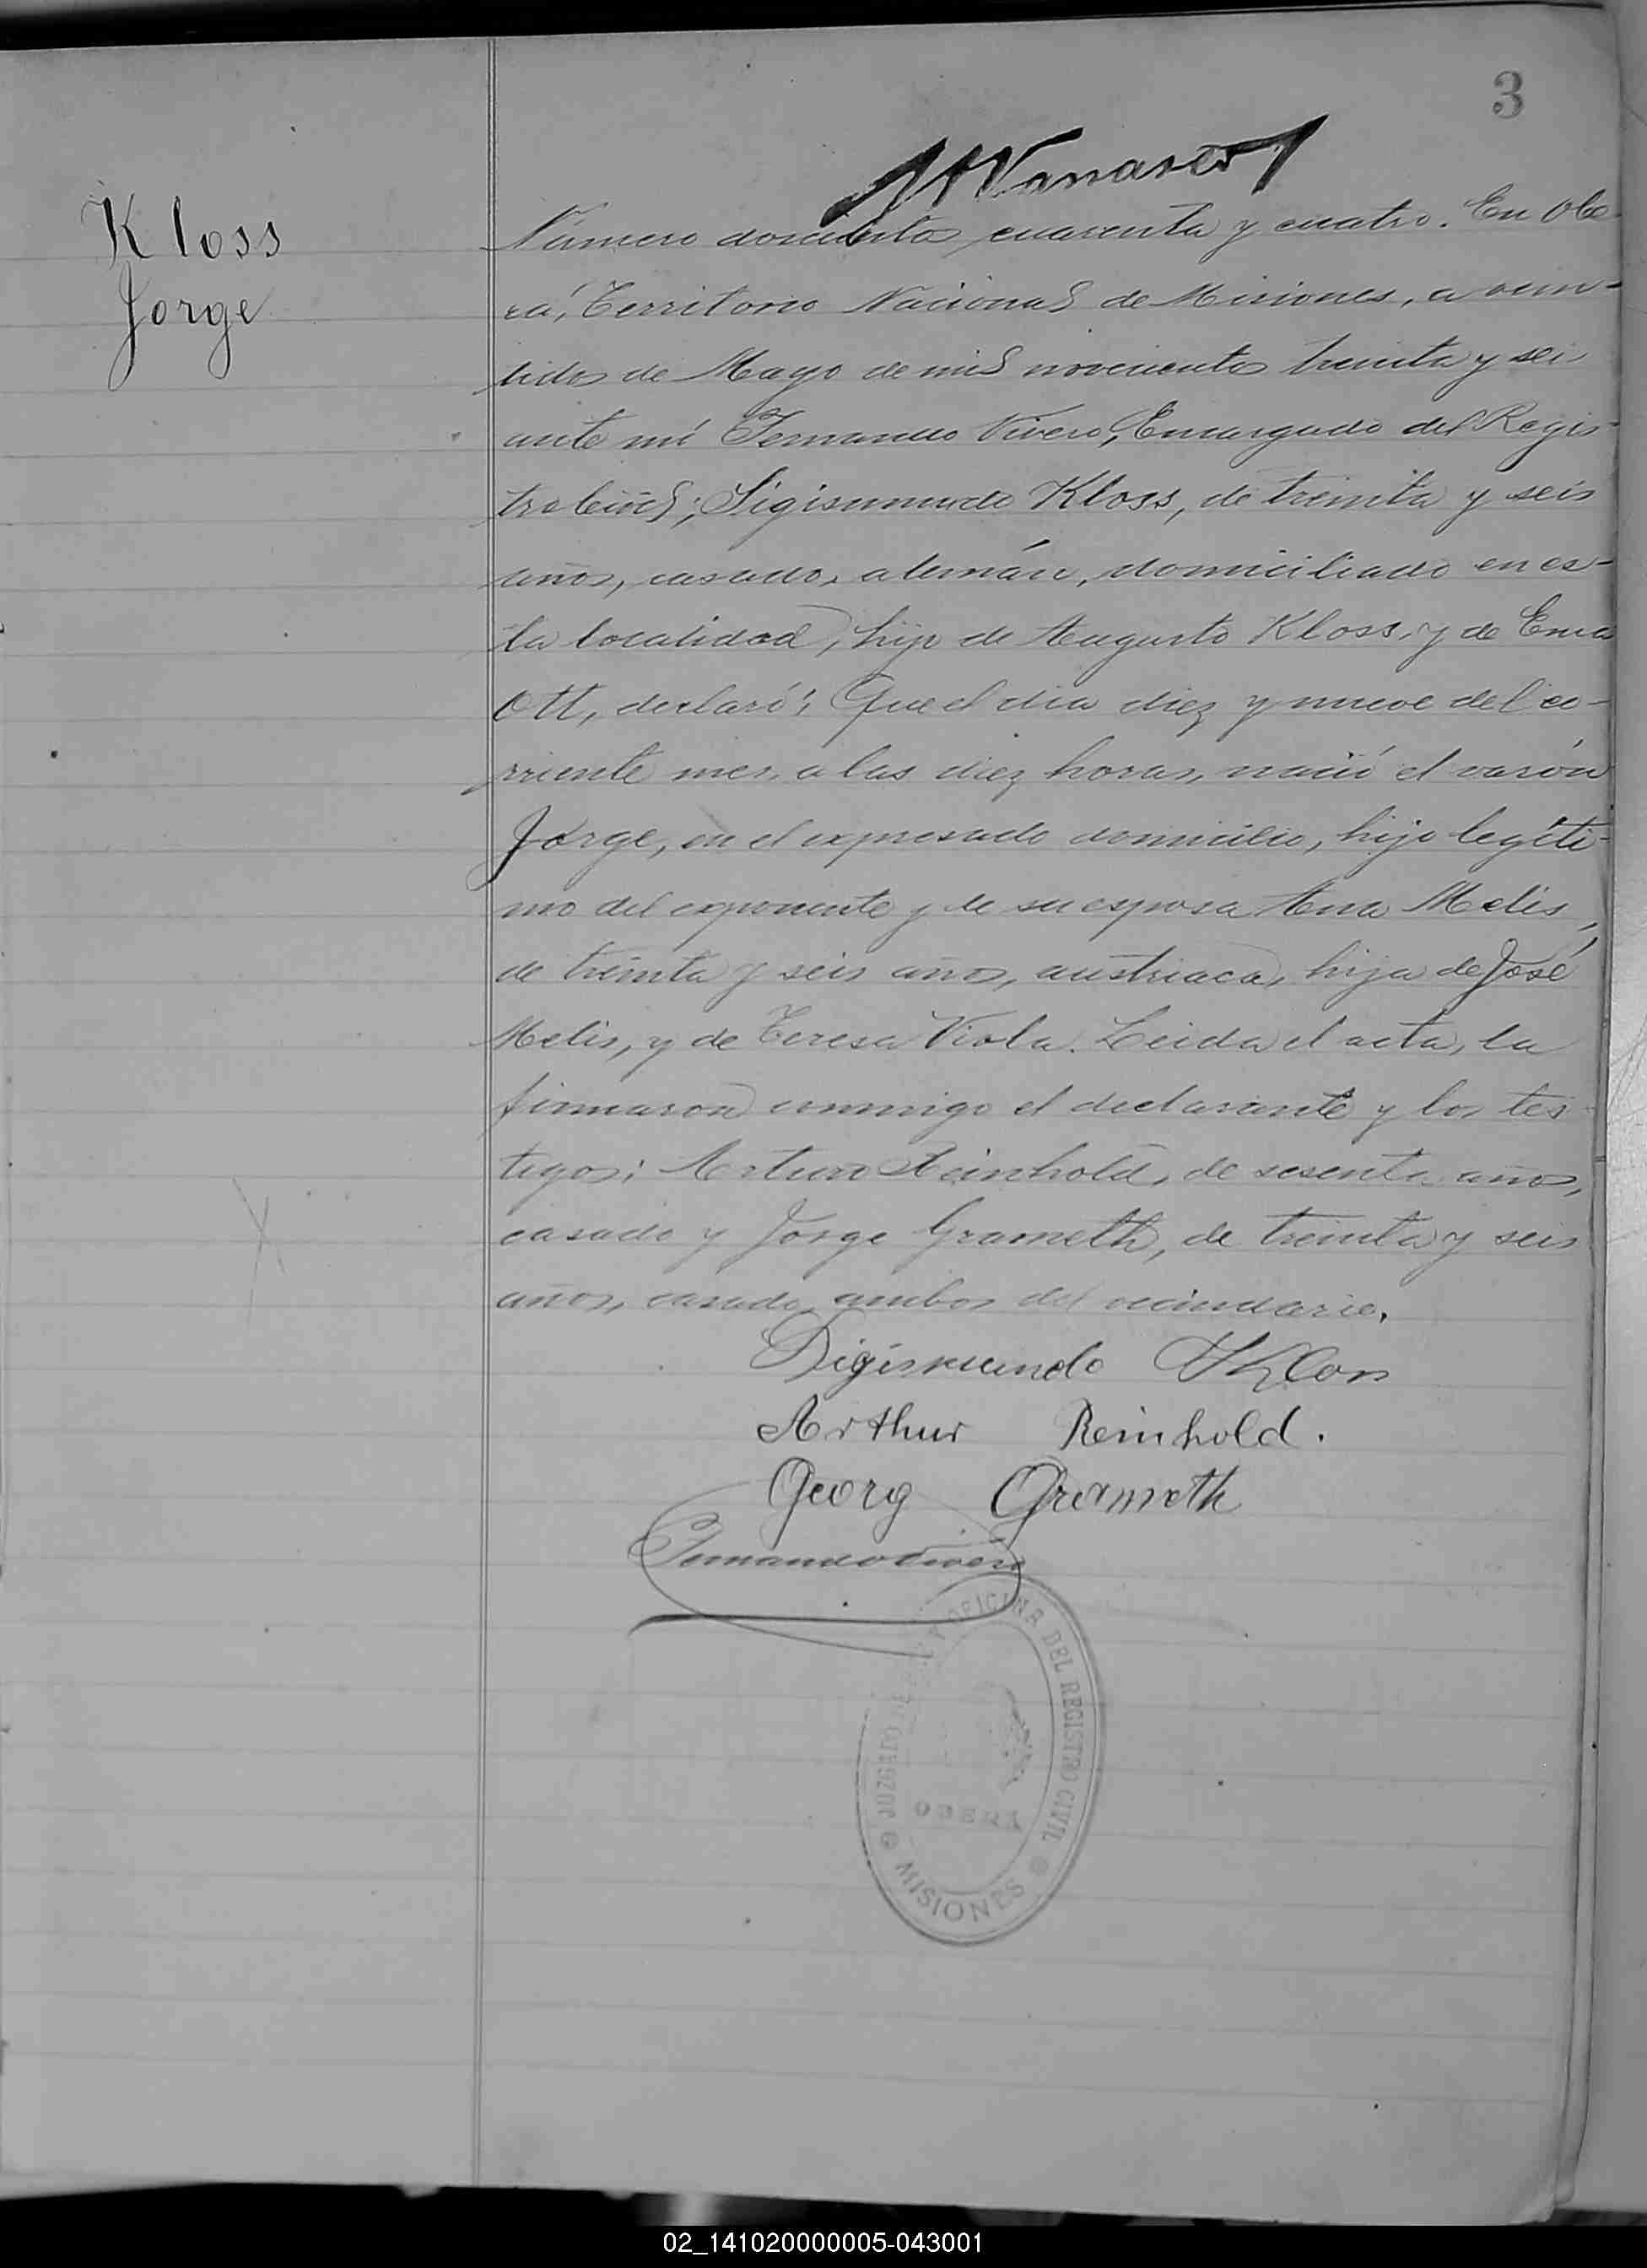 3
Kloss
Jorge
Número doscientos cuarenta y cuatro. En Obe-
rá, Territorio Nacional de Misiones, a vein-
tidos de Mayo de mil novecientos treinta y seis
ante mí Fernando Vivero, Encargado del Regis-
tro Civil; Sigismundo Kloss, de treinta y seis
años, casado, alemán, domiciliado en es-
ta localidad, hijo de Augusto Kloss, y de Ema
Ott, declaró: Que el dia diez y nueve del co-
rriente mes, a las diez horas, nació el varón
Jorge, en el expresado domicilio, hijo legíti-
mo del exponente y de su esposa Ana Melis,
de treinta y seis años, austriaca, hija de José
Melis, y de Teresa Viola. Leida el acta, la
firmaron conmigo el declarante y los tes-
tigos: Arturo Reinhold, de sesenta años,
casado y Jorge Grameth, de treinta y seis
años, casado, ambos del vecindario.
Sigismundo Kloss
Arthur Reinhold.
Georg Grameth
Fernando Vivero
JUZGADO DE PAZ Y OFICINA DEL REGISTRO CIVIL
OBERÁ
MISIONES
02_141020000005-043001